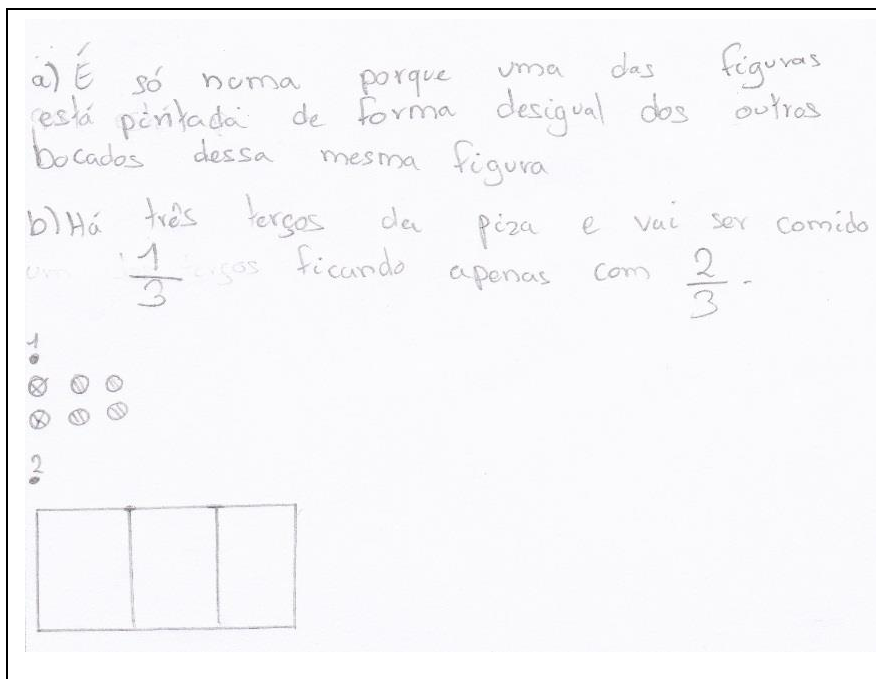 a) É só numa porque uma das figuras
está pintada de forma desigual dos outros
bocados dessa mesma figura
b) Há três terços da piza e vai ser comido
1/3 ficando apenas com 2/3.
1
2